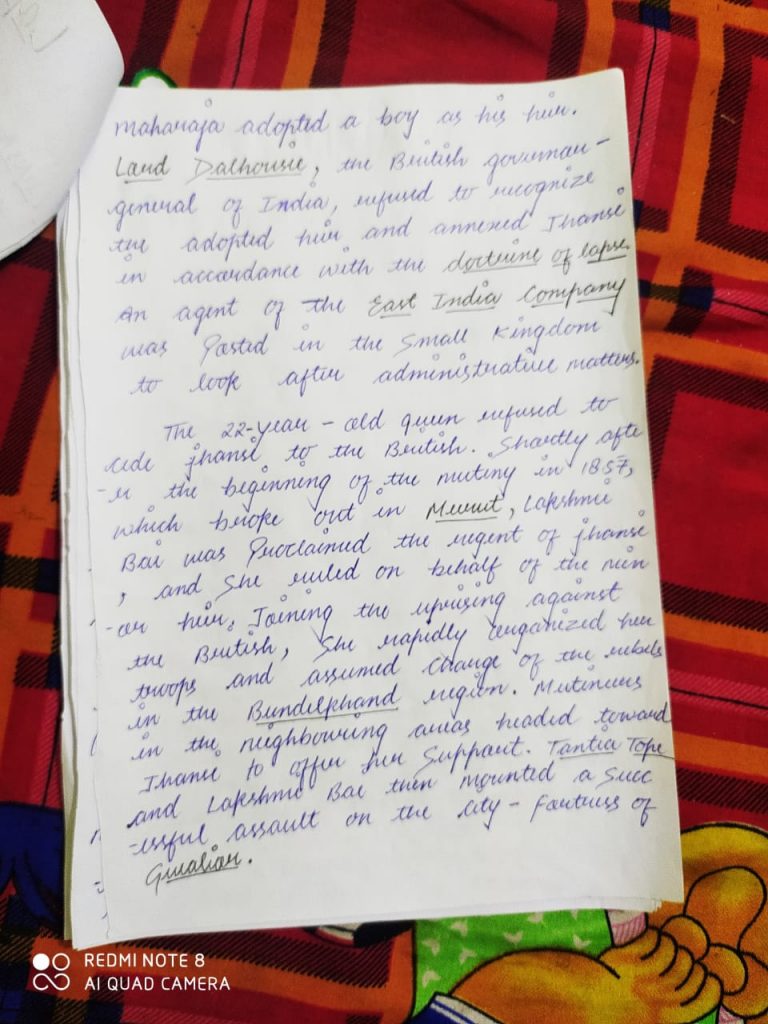 maharaja adopted a boy as his heir.
Lord Dalhousie, the British governor-
general of India, refused to recognize
the adopted heir and annexed Jhansi
in accordance with the doctrine of lapse.
An agent of the East India Company
was Posted in the Small Kingdom
to look after administrative matters.
The 22-year-old queen refused to
cede jhansi to the British. Shortly afte
-er the beginning of the mutiny in 1857,
which broke out in Meerut, Lakshmi
Bai was Proclaimed the regent of jhansi
, and She ruled on behalf of the min
-or heir. Joining the uprising against
the British, She rapidly organized her
troops and assumed charge of the rebels
in the Bundelkhand region. Mutineers
in the neighbouring areas headed toward
Jhansi to offer her Support. Tantia Tope
and Lakshmi Bai then mounted a Succ
-essful assault on the city-fortress of
Gwalior.
REDMI NOTE 8
AI QUAD CAMERA